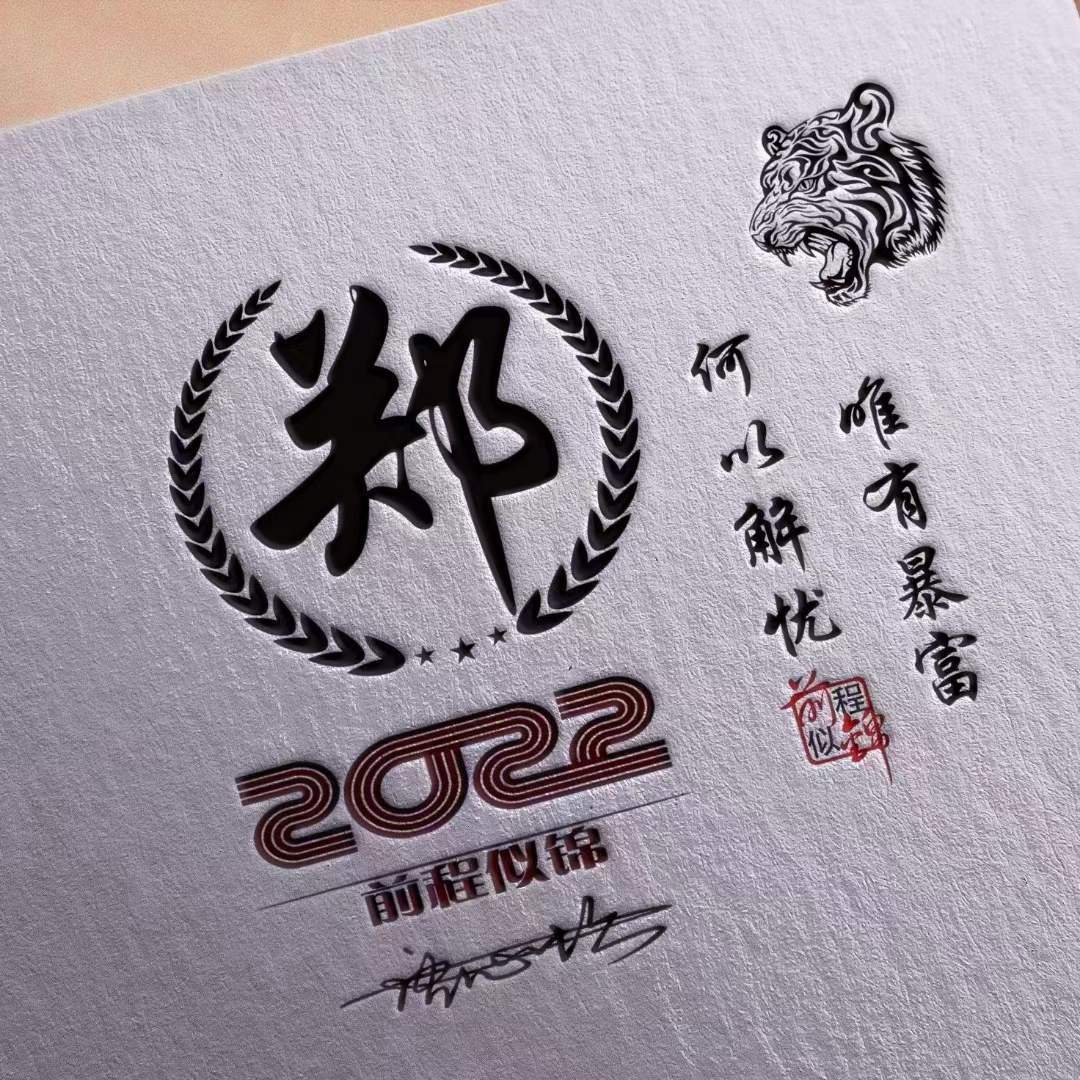 郑
何以解忧
唯有暴富
前程似锦
2022
前程似锦